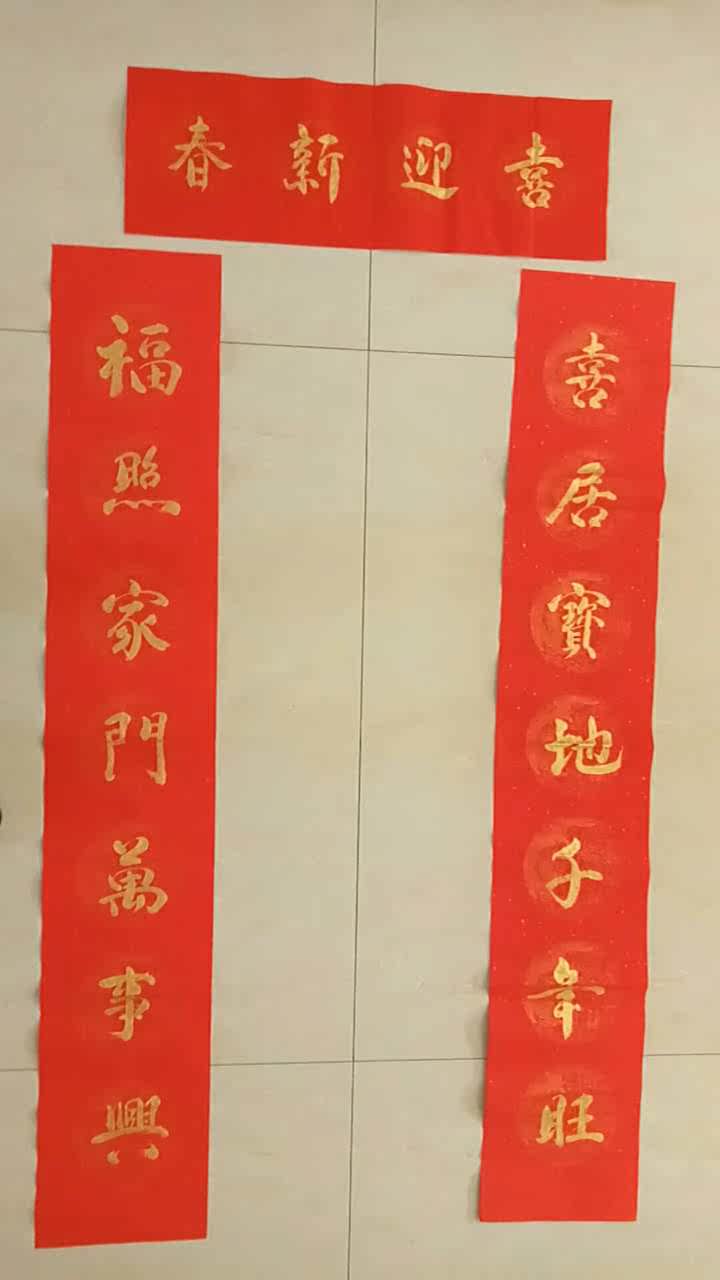 喜迎新春
喜居寶地千年旺
福照家門萬事興